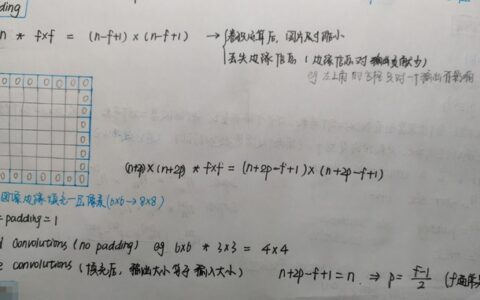 ding
n * f×f = (n-f+1) × (n-f+1) → 卷积运算后,图片尺寸缩小
丢失边缘信息(边缘信息对输出贡献少)
eg 左上角的
0 0 0 0 0 0 0
0
0
0
0
0
0
(n+2p)×(n+2p) * f×f = (n+2p-f+1)×(n+2p-f+1)
图像边缘填充一层像素(6×6→8×8)
= padding = 1
d convolutions (no padding) eg 6×6 * 3×3 = 4×4
e convolutions (填充后,输出大小等于输入大小) n+2p-f+1 = n. ⇒ p = (f-1)/2 (f通常